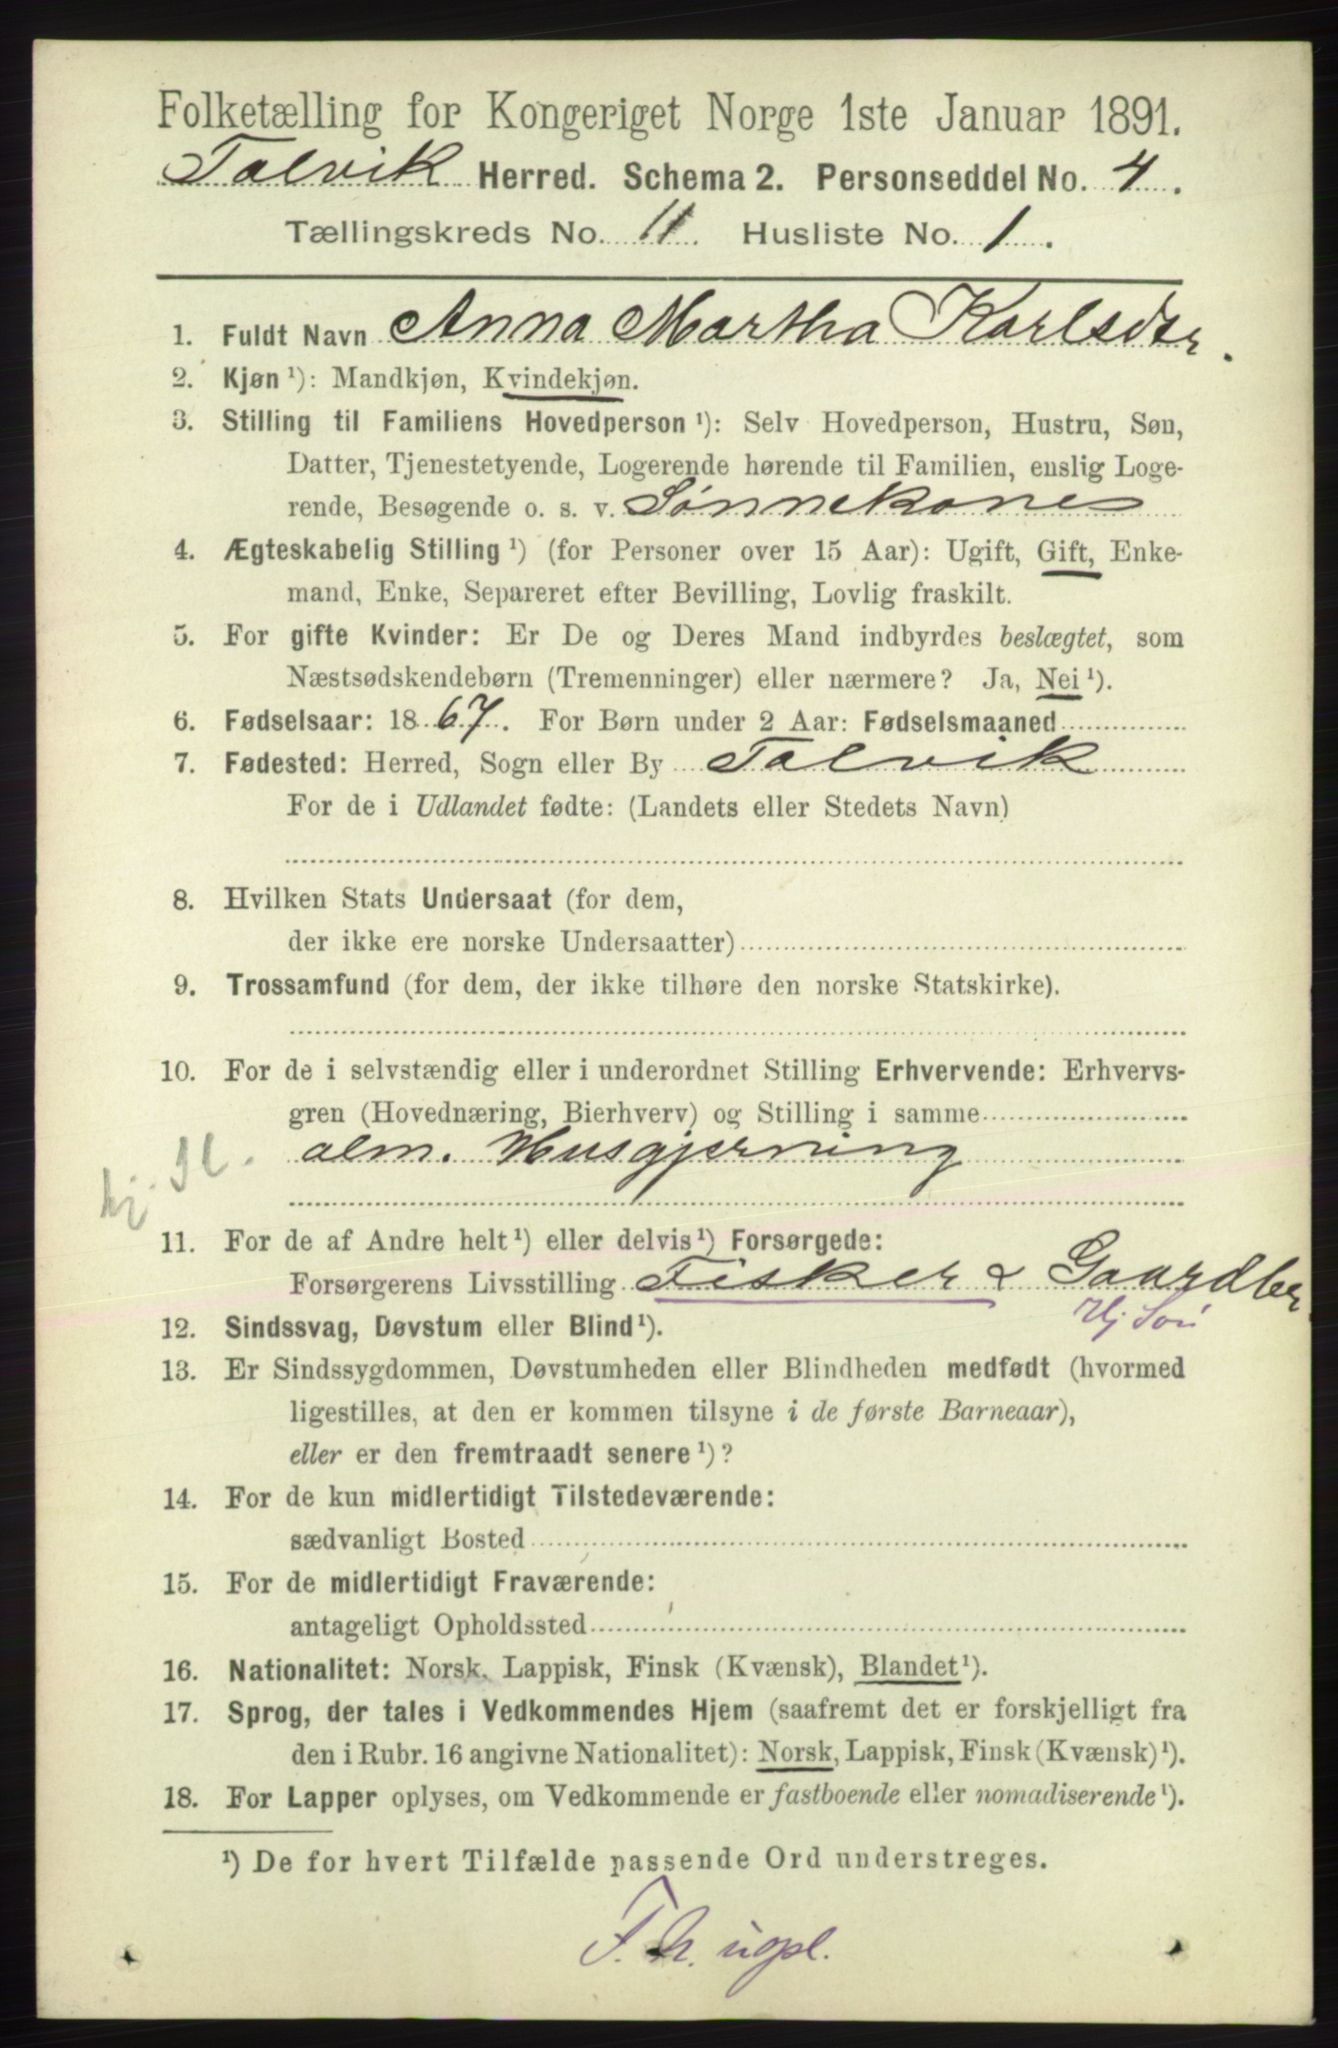 Folketælling for Kongeriget Norge 1ste Januar 1891.
Talvik Herred. Schema 2. Personseddel No. 4.
Tællingskreds No. 11. Husliste No. 1.
1. Fuldt Navn Anna Martha Karlsdtr.
2. Kjøn ¹): Mandkjøn, Kvindekjøn.
3. Stilling til Familiens Hovedperson ¹): Selv Hovedperson, Hustru, Søn,
Datter, Tjenestetyende, Logerende hørende til Familien, enslig Loge-
rende, Besøgende o. s. v. Sønnekone
4. Ægteskabelig Stilling ¹) (for Personer over 15 Aar): Ugift, Gift, Enke-
mand, Enke, Separeret efter Bevilling, Lovlig fraskilt.
5. For gifte Kvinder: Er De og Deres Mand indbyrdes beslægtet, som
Næstsødskendebørn (Tremenninger) eller nærmere? Ja, Nei ¹).
6. Fødselsaar: 1867. For Børn under 2 Aar: Fødselsmaaned
7. Fødested: Herred, Sogn eller By Talvik
For de i Udlandet fødte: (Landets eller Stedets Navn)
8. Hvilken Stats Undersaat (for dem,
der ikke ere norske Undersaatter)
9. Trossamfund (for dem, der ikke tilhøre den norske Statskirke).
10. For de i selvstændig eller i underordnet Stilling Erhvervende: Erhvervs-
gren (Hovednæring, Bierhverv) og Stilling i samme
alm. Husgjerning
11. For de af Andre helt ¹) eller delvis ¹) Forsørgede:
Forsørgerens Livsstilling Fisker & Gaardbr
12. Sindssvag, Døvstum eller Blind ¹).
13. Er Sindssygdommen, Døvstumheden eller Blindheden medfødt (hvormed
ligestilles, at den er kommen tilsyne i de første Barneaar),
eller er den fremtraadt senere ¹)?
14. For de kun midlertidigt Tilstedeværende:
sædvanligt Bosted
15. For de midlertidigt Fraværende:
antageligt Opholdssted
16. Nationalitet: Norsk, Lappisk, Finsk (Kvænsk), Blandet ¹).
17. Sprog, der tales i Vedkommendes Hjem (saafremt det er forskjelligt fra
den i Rubr. 16 angivne Nationalitet): Norsk, Lappisk, Finsk (Kvænsk) ¹).
18. For Lapper oplyses, om Vedkommende er fastboende eller nomadiserende ¹).
¹) De for hvert Tilfælde passende Ord understreges.